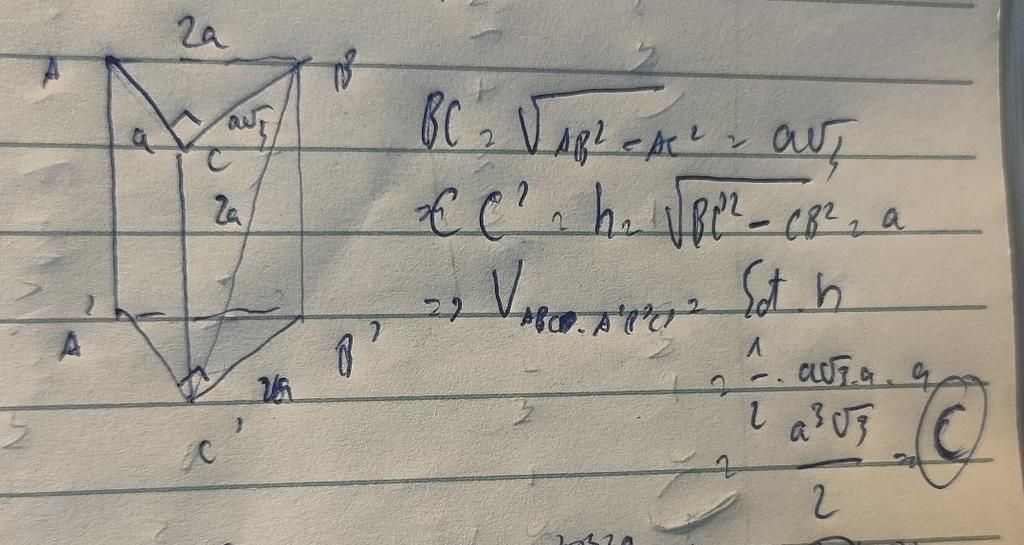 2a
A B
a a√3 C
2a
A' B'
2a
C'
BC = √AB² - AC² = a√3
=> CC' = h = √BC'² - CB² = a
=> V ABC.A'B'C' = Sđ . h
= 1/2 . a√3 . a . a
= a³√3/2 => C